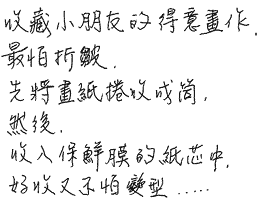 收藏小朋友的得意畫作.
最怕折皺.
先將畫紙捲收成筒,
然後.
收入保鮮膜的紙芯中,
好收又不怕變型.....